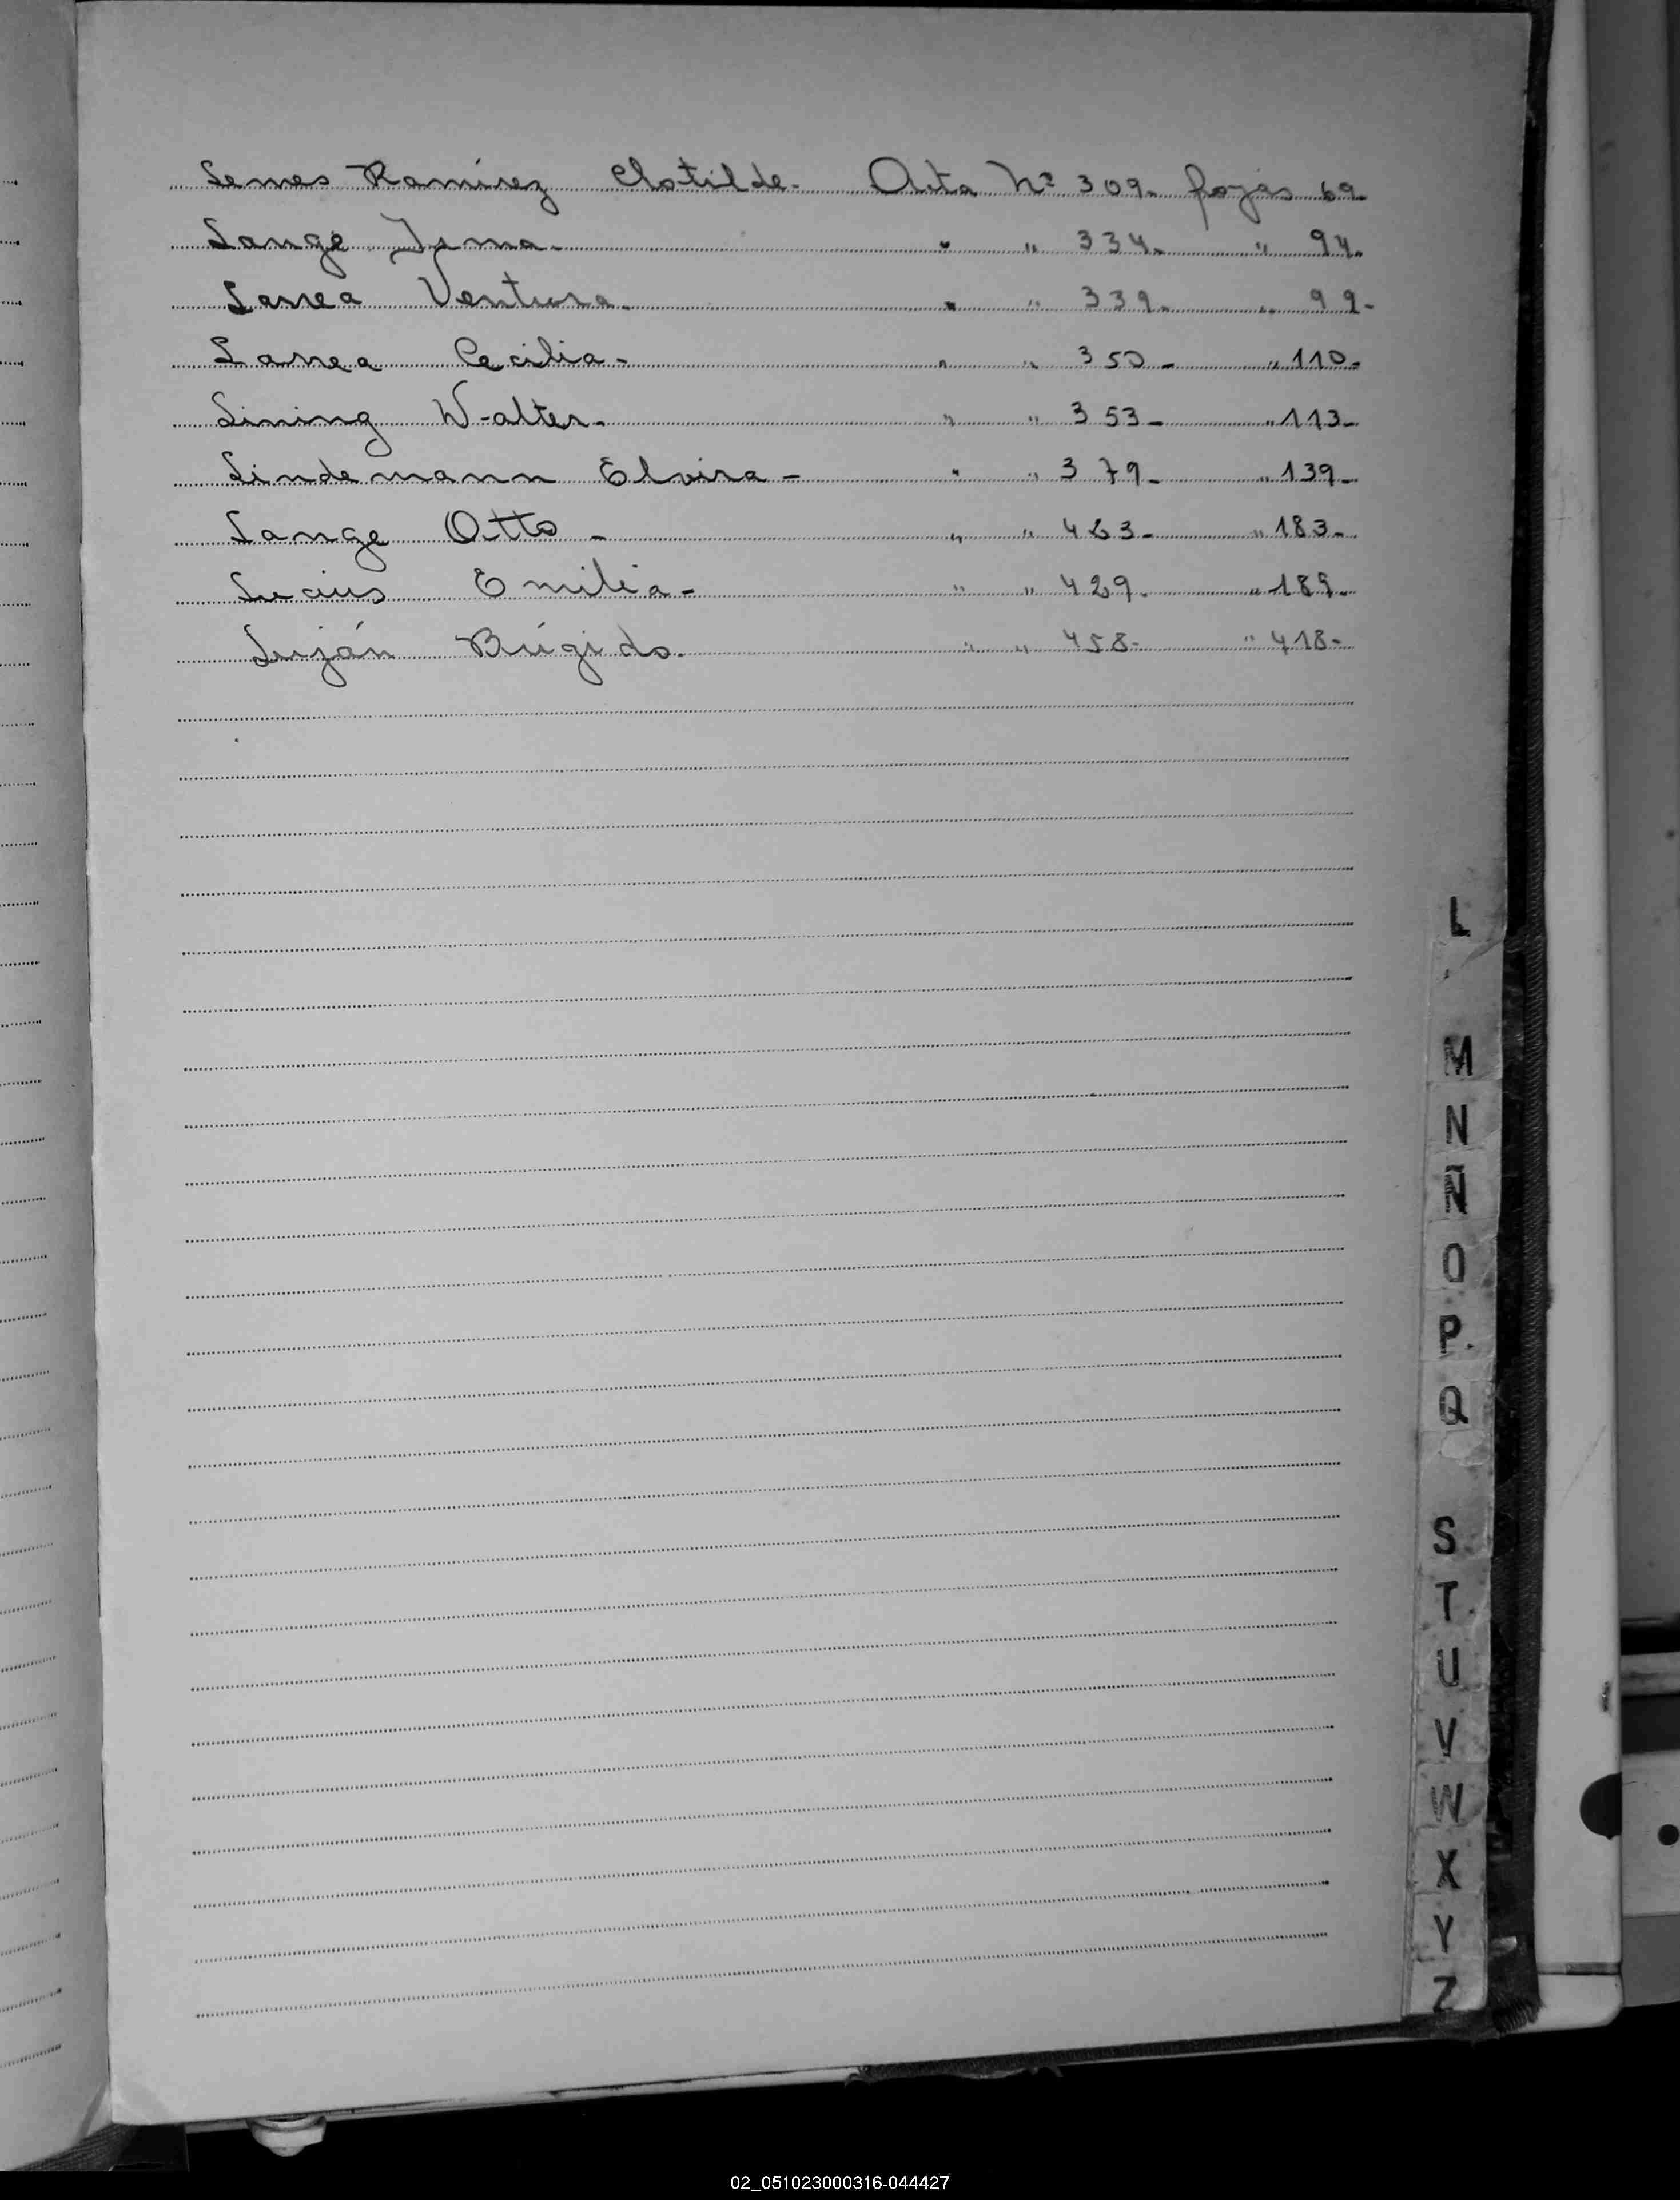 Lemes Ramírez Clotilde. Acta Nº 309. fojas 69.
Lange Irma. " " 334. " 94.
Larrea Ventura. " " 339. " 99-
Larrea Cecilia- " " 350- " 110-
Lining Walter. " " 353- " 113-
Lindemann Elvira- " " 379- " 139-
Lange Otto- " " 423- " 183-
Lucius Emilia- " " 429. " 189-
Luján Brígido. " " 458- " 418-
L
M
N
Ñ
O
P.
Q
S
T
U
V
W
X
Y
Z
02_051023000316-044427